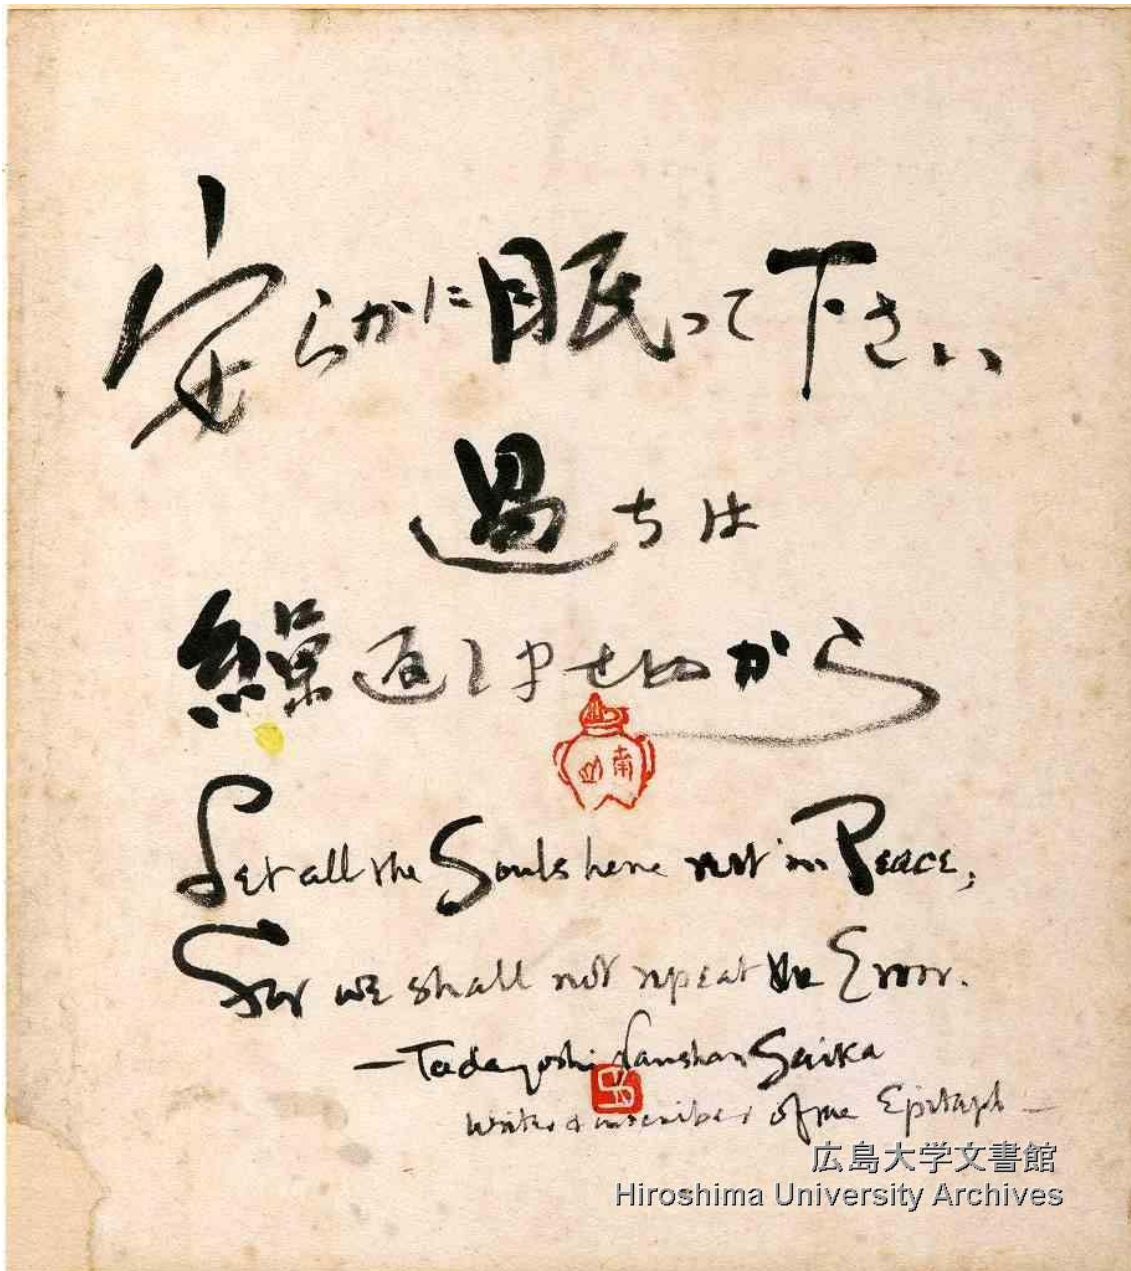 安らかに眠って下さい
過ちは
繰返しませぬから
南
Let all the Souls here rest in Peace;
For we shall not repeat the Error.
—Tadayoshi Nanshan Saika
writer & inscriber of the Epitaph—
広島大学文書館
Hiroshima University Archives